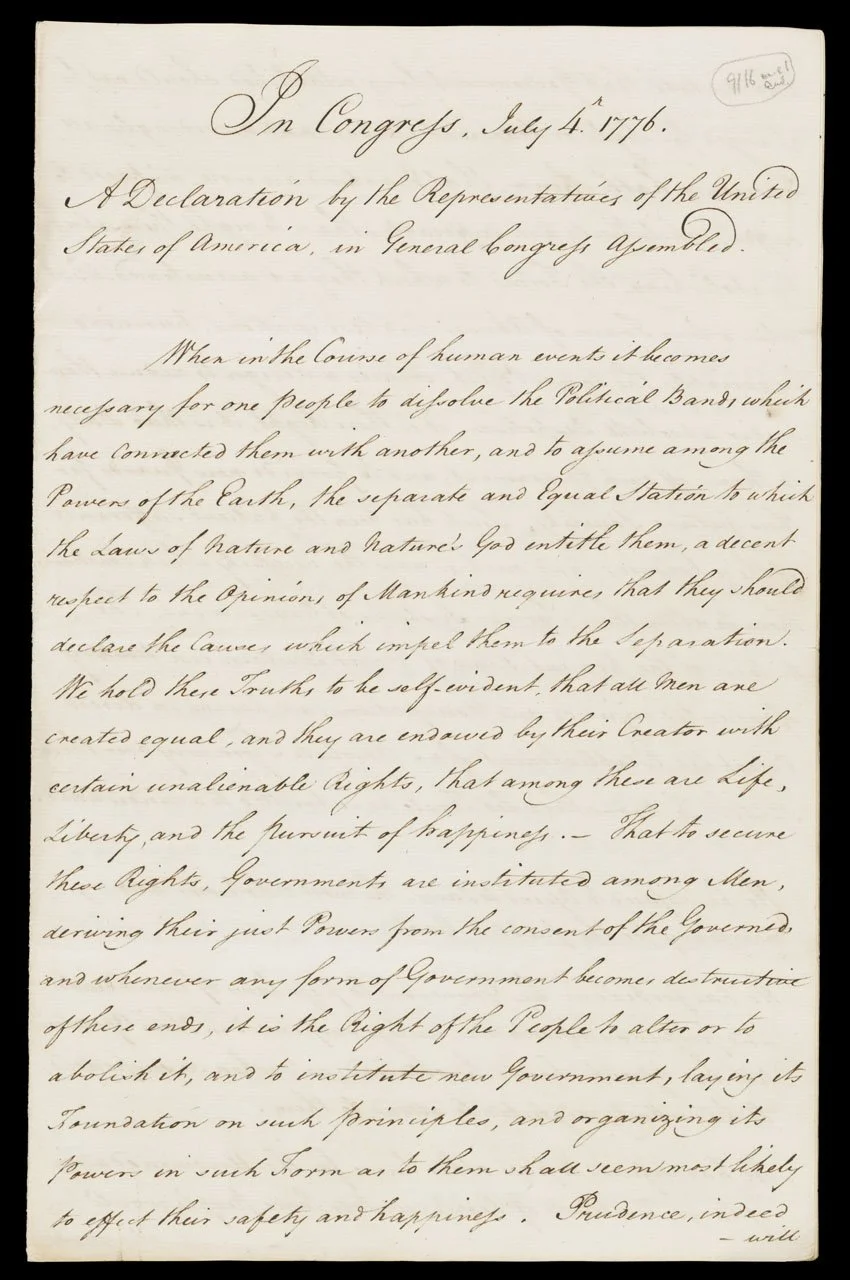 9/16
In Congress, July 4. 1776.
A Declaration by the Representatives of the United
States of America, in General Congress assembled.
When in the Course of human events it becomes
necessary for one People to dissolve the Political Bands which
have connected them with another, and to assume among the
Powers of the Earth, the separate and Equal Station to which
the Laws of Nature and Nature's God entitle them, a decent
respect to the Opinions of Mankind requires that they should
declare the Causes which impel them to the Separation.
We hold these Truths to be self-evident, that all Men are
created equal, and they are endowed by their Creator with
certain unalienable Rights, that among these are Life,
Liberty, and the pursuit of happiness. — That to secure
these Rights, Governments are instituted among Men,
deriving their just Powers from the consent of the Governed,
and whenever any form of Government becomes destructive
of these ends, it is the Right of the People to alter or to
abolish it, and to institute new Government, laying its
Foundation on such principles, and organizing its
Powers in such Form as to them shall seem most likely
to effect their safety and happiness. Prudence, indeed
— will